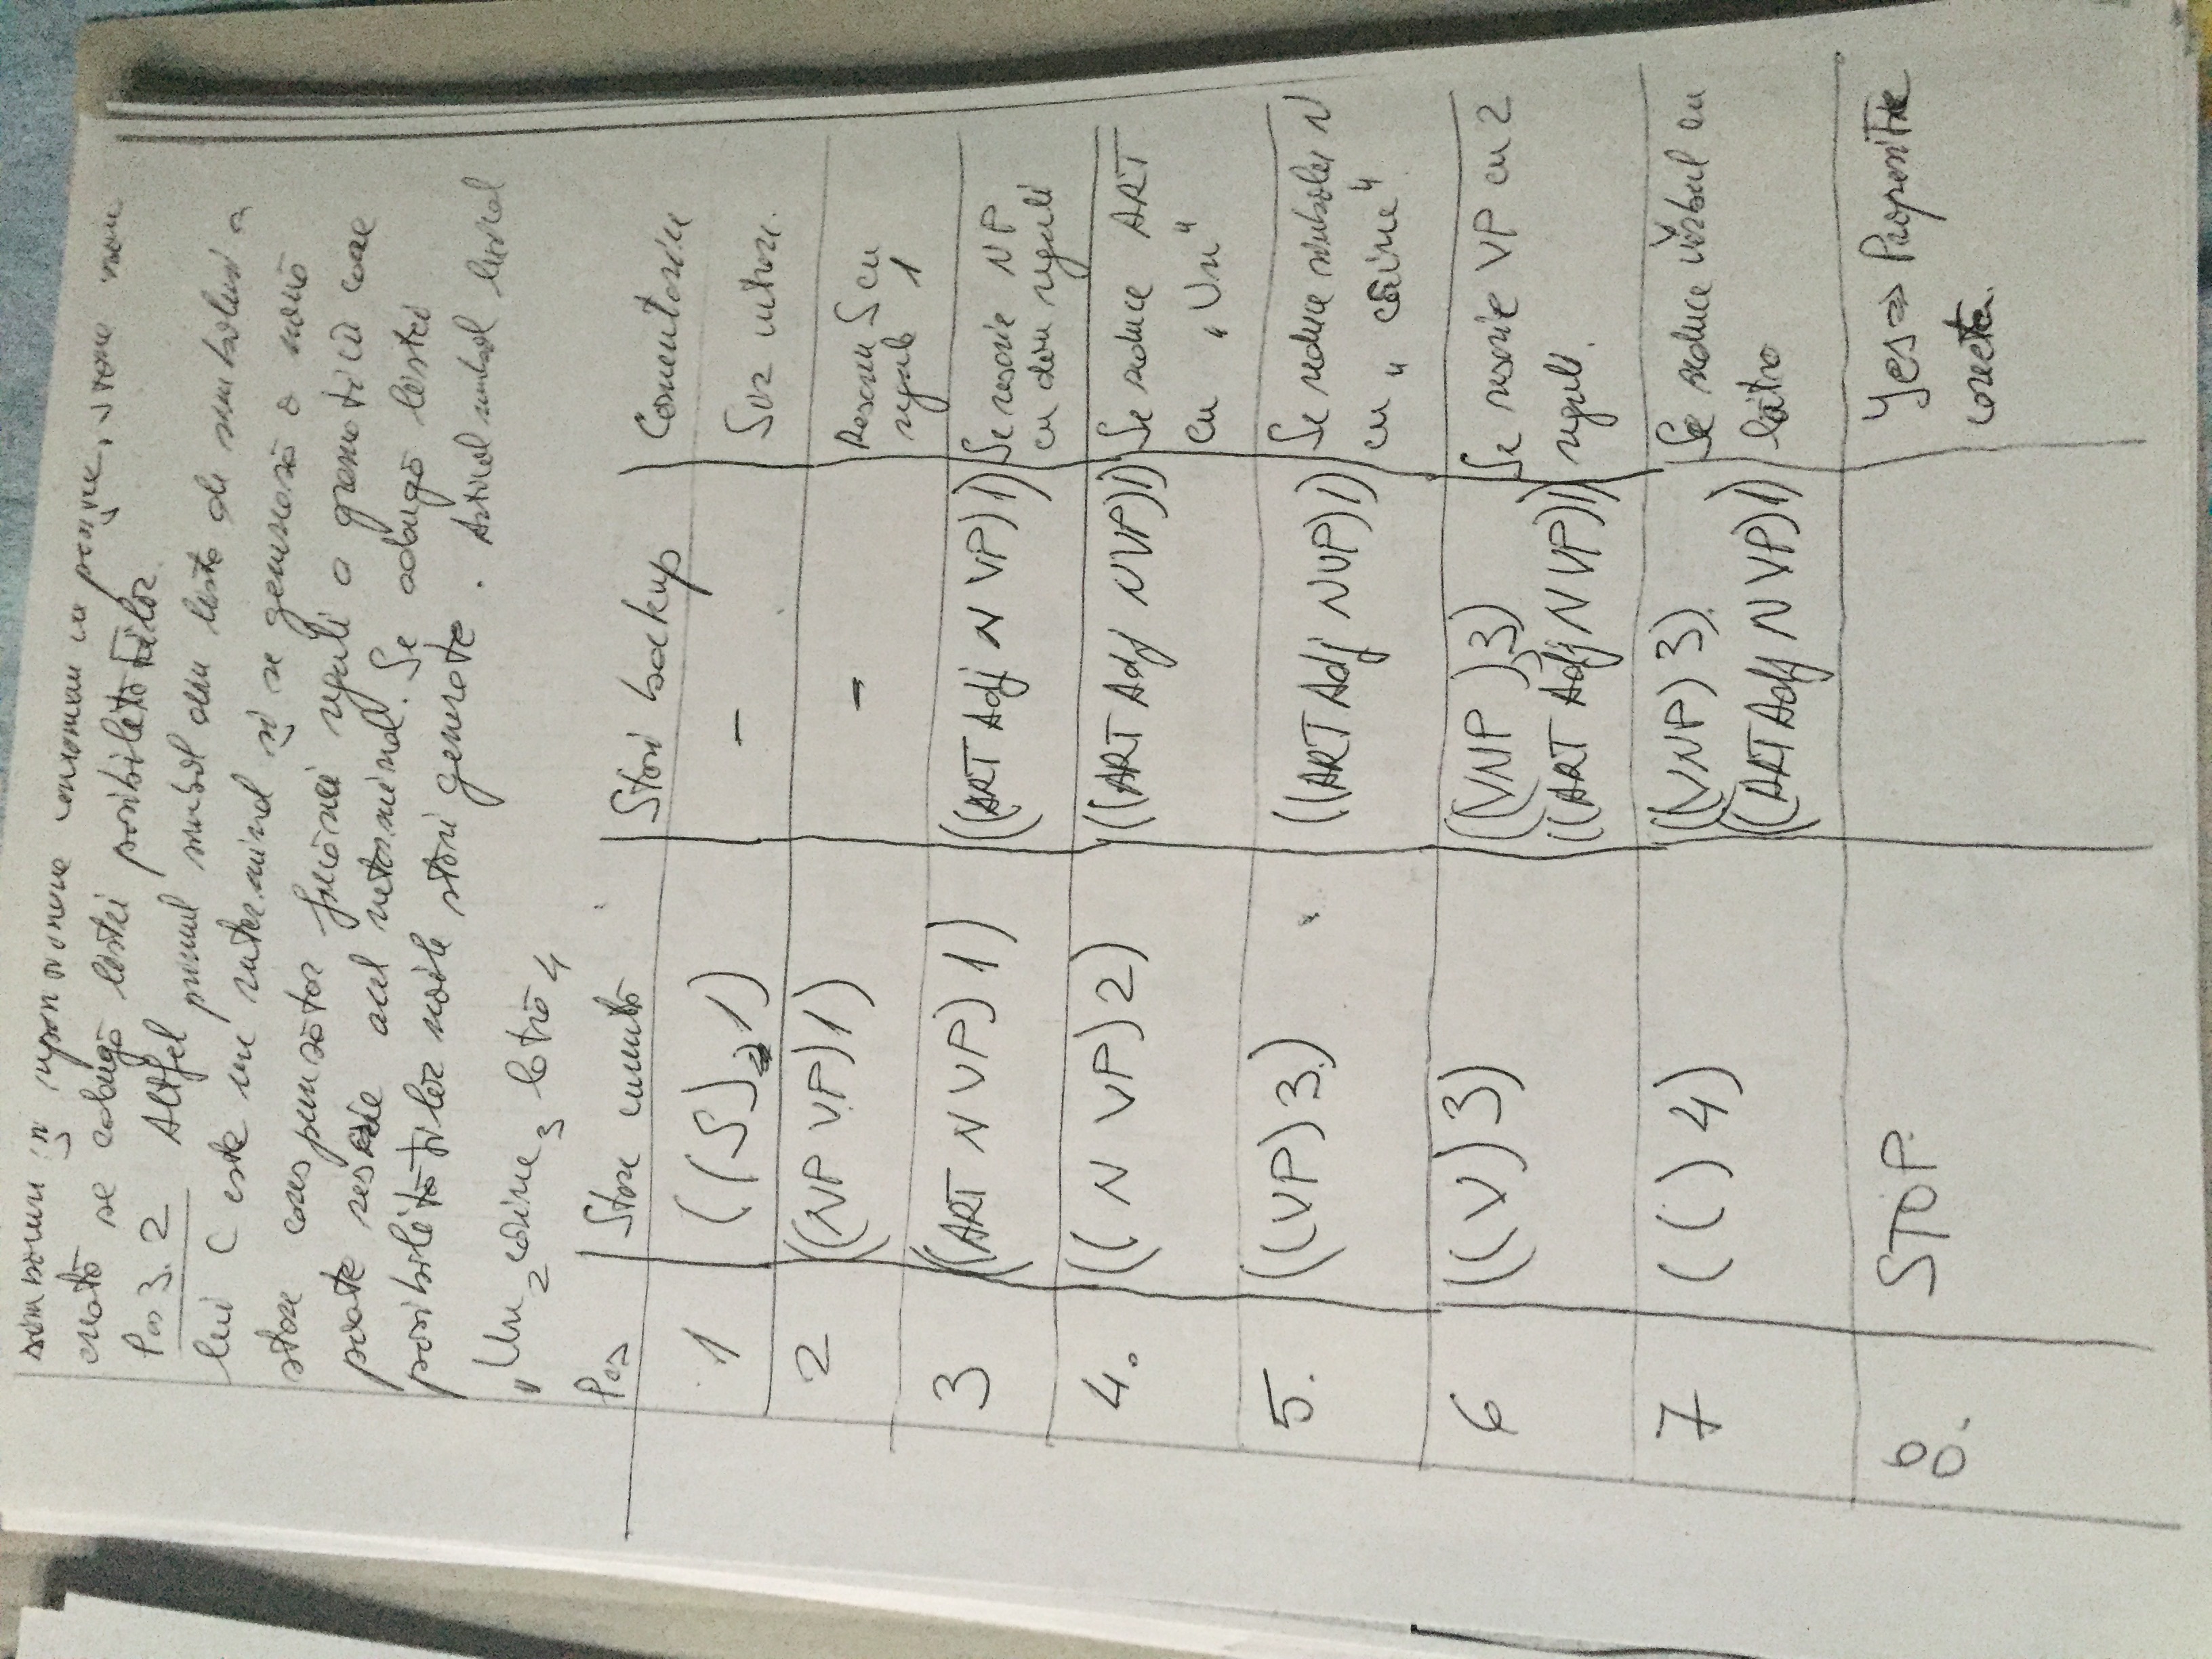 simboluri și
creată se adaugă listei posibilităților.
Pas 3.2 Altfel primul simbol din lista de simboluri a
lui C este un neterminal și se generează o nouă
stare corespunzător fiecărei reguli a gramaticii care
poate rescrie acel neterminal. Se adaugă listei
posibilităților noile stări generate. Articol simbol lexical
„Un 2 câine 3 latră 4
Pas Stare curentă Stări backup Comentariu
1 ((S) 1) -
2 ((NP VP) 1) - Rescriu S cu
regula 1
3 ((ART N VP) 1) ((ART Adj N VP) 1) Se rescrie NP
cu două reguli
4. ((N VP) 2) ((ART Adj N VP) 1) Se reduce ART
cu „Un"
5. ((VP) 3) ((ART Adj N VP) 1) Se reduce simbolul N
cu „câine"
6 ((V) 3) ((V NP) 3) Se rescrie VP cu 2
((ART Adj N VP) 1) reguli.
7 (() 4) ((V NP) 3) Se reduce verbul cu
((ART Adj N VP) 1) lătra
8. STOP. Yes => Propoziție
corectă.